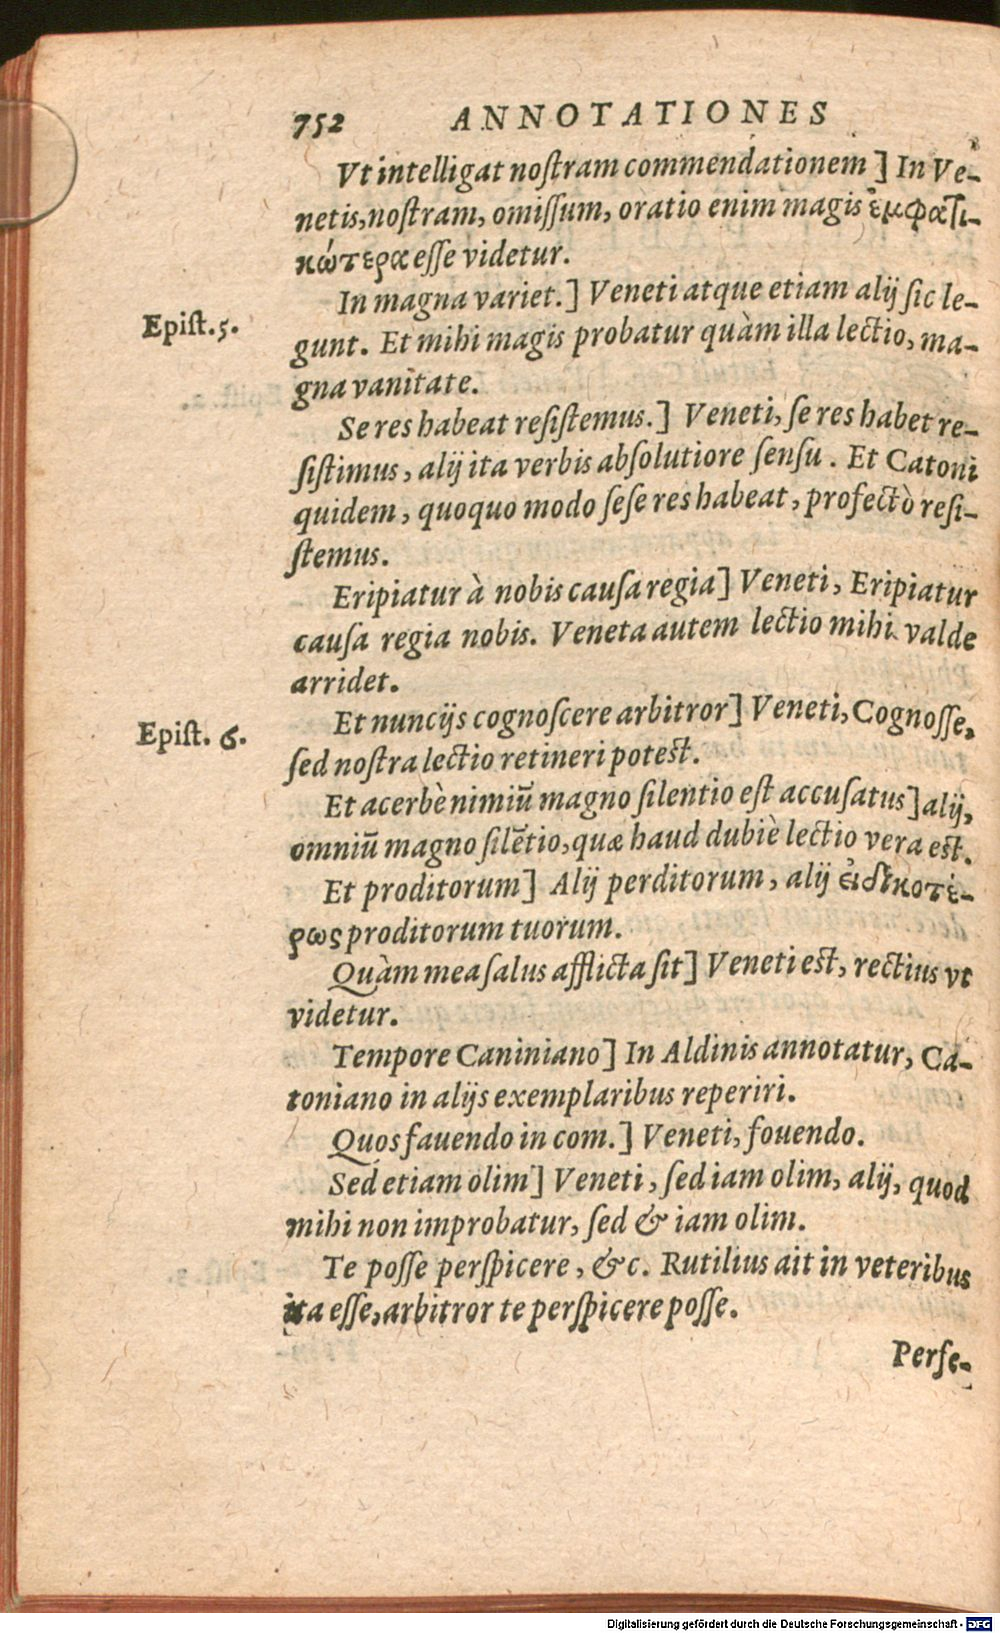 752 ANNOTATIONES
Vt intelligat noſtram commendationem] In Ve-
netis, noſtram, omiſſum, oratio enim magis ἐμφατι-
κώτερα eſſe videtur.
In magna variet.] Veneti atque etiam alij ſic le-
Epiſt. 5.
gunt. Et mihi magis probatur quàm illa lectio, ma-
gna vanitate.
Se res habeat reſiſtemus.] Veneti, ſe res habet re-
ſiſtimus, alij ita verbis abſolutiore ſenſu. Et Catoni
quidem, quoquo modo ſeſe res habeat, profectò reſi-
ſtemus.
Eripiatur à nobis cauſa regia] Veneti, Eripiatur
cauſa regia nobis. Veneta autem lectio mihi valde
arridet.
Et nuncijs cognoſcere arbitror] Veneti, Cognoſſe,
Epiſt. 6.
ſed noſtra lectio retineri poteſt.
Et acerbè nimiũ magno ſilentio eſt accuſatus] alij,
omniũ magno ſilẽtio, quæ haud dubiè lectio vera eſt.
Et proditorum] Alij perditorum, alij εἰδικοτέ-
ρως proditorum tuorum.
Quàm mea ſalus afflicta ſit] Veneti eſt, rectius vt
videtur.
Tempore Caniniano] In Aldinis annotatur, Ca-
toniano in alijs exemplaribus reperiri.
Quos fauendo in com.] Veneti, fouendo.
Sed etiam olim] Veneti, ſed iam olim, alij, quod
mihi non improbatur, ſed & iam olim.
Te poſſe perſpicere, &c. Rutilius ait in veteribus
ita eſſe, arbitror te perſpicere poſſe.
Perſe-
Digitalisierung gefördert durch die Deutsche Forschungsgemeinschaft - DFG